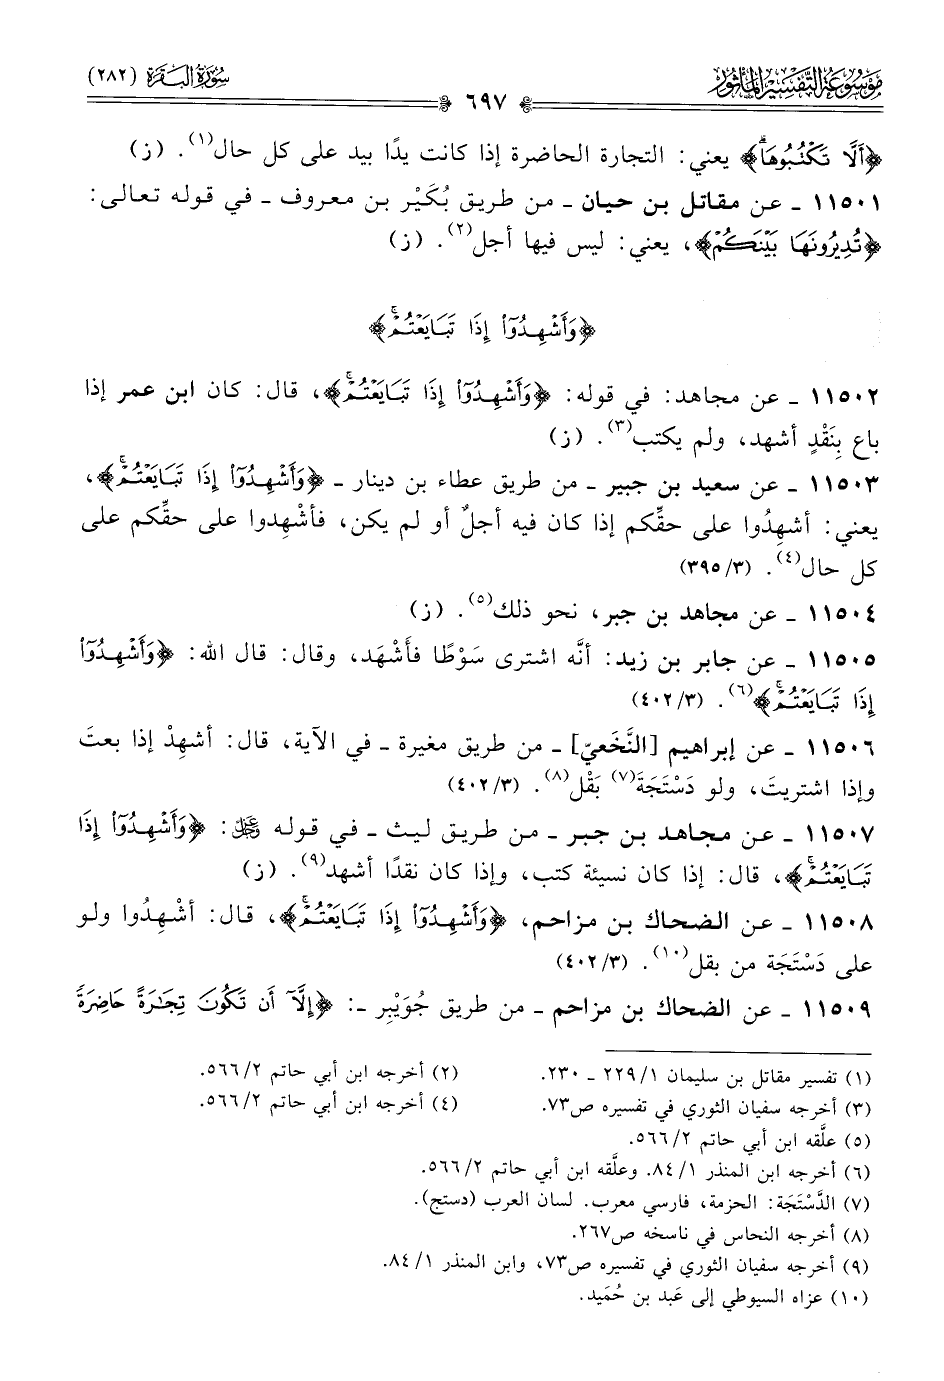 مَوْسُوعَةُ التَّفْسِيرِ المَأْثُور
٦٩٧
سُورَةُ البَقَرَة (٢٨٢)
﴿أَلَّا تَكْتُبُوهَاۗ﴾ يعني: التجارة الحاضرة إذا كانت يدًا بيد على كل حال(١). (ز)
١١٥٠١ ـ عن مقاتل بن حيان ـ من طريق بُكَيْر بن معروف ـ في قوله تعالى:
﴿تُدِيرُونَهَا بَيْنَكُمْ﴾، يعني: ليس فيها أجل(٢). (ز)
﴿وَأَشْهِدُوٓا۟ إِذَا تَبَايَعْتُمْۚ﴾
١١٥٠٢ ـ عن مجاهد: في قوله: ﴿وَأَشْهِدُوٓا۟ إِذَا تَبَايَعْتُمْۚ﴾، قال: كان ابن عمر إذا
باع بِنَقْدٍ أشهد، ولم يكتب(٣). (ز)
١١٥٠٣ ـ عن سعيد بن جبير ـ من طريق عطاء بن دينار ـ ﴿وَأَشْهِدُوٓا۟ إِذَا تَبَايَعْتُمْۚ﴾،
يعني: أشهِدُوا على حقِّكم إذا كان فيه أجلٌ أو لم يكن، فأشْهِدوا على حقِّكم على
كل حال(٤). (٣/ ٣٩٥)
١١٥٠٤ ـ عن مجاهد بن جبر، نحو ذلك(٥). (ز)
١١٥٠٥ ـ عن جابر بن زيد: أنَّه اشترى سَوْطًا فأَشْهَد، وقال: قال الله: ﴿وَأَشْهِدُوٓا۟
إِذَا تَبَايَعْتُمْۚ﴾(٦). (٣/ ٤٠٢)
١١٥٠٦ ـ عن إبراهيم [النَّخَعيّ] ـ من طريق مغيرة ـ في الآية، قال: أشهِدْ إذا بعتَ
وإذا اشتريتَ، ولو دَسْتَجَةَ(٧) بَقْل(٨). (٣/ ٤٠٢)
١١٥٠٧ ـ عن مجاهد بن جبر ـ من طريق ليث ـ في قوله ﷿: ﴿وَأَشْهِدُوٓا۟ إِذَا
تَبَايَعْتُمْۚ﴾، قال: إذا كان نسيئة كتب، وإذا كان نقدًا أشهد(٩). (ز)
١١٥٠٨ ـ عن الضحاك بن مزاحم، ﴿وَأَشْهِدُوٓا۟ إِذَا تَبَايَعْتُمْۚ﴾، قال: أشْهِدُوا ولو
على دَسْتَجَة من بقل(١٠). (٣/ ٤٠٢)
١١٥٠٩ ـ عن الضحاك بن مزاحم ـ من طريق جُوَيْبِر ـ: ﴿إِلَّآ أَن تَكُونَ تِجَٰرَةً حَاضِرَةً
(١) تفسير مقاتل بن سليمان ١/ ٢٢٩ ـ ٢٣٠.
(٢) أخرجه ابن أبي حاتم ٢/ ٥٦٦.
(٣) أخرجه سفيان الثوري في تفسيره ص٧٣.
(٤) أخرجه ابن أبي حاتم ٢/ ٥٦٦.
(٥) علَّقه ابن أبي حاتم ٢/ ٥٦٦.
(٦) أخرجه ابن المنذر ١/ ٨٤. وعلَّقه ابن أبي حاتم ٢/ ٥٦٦.
(٧) الدَّسْتَجَة: الحزمة، فارسي معرب. لسان العرب (دستج).
(٨) أخرجه النحاس في ناسخه ص٢٦٧.
(٩) أخرجه سفيان الثوري في تفسيره ص٧٣، وابن المنذر ١/ ٨٤.
(١٠) عزاه السيوطي إلى عَبد بن حُمَيد.